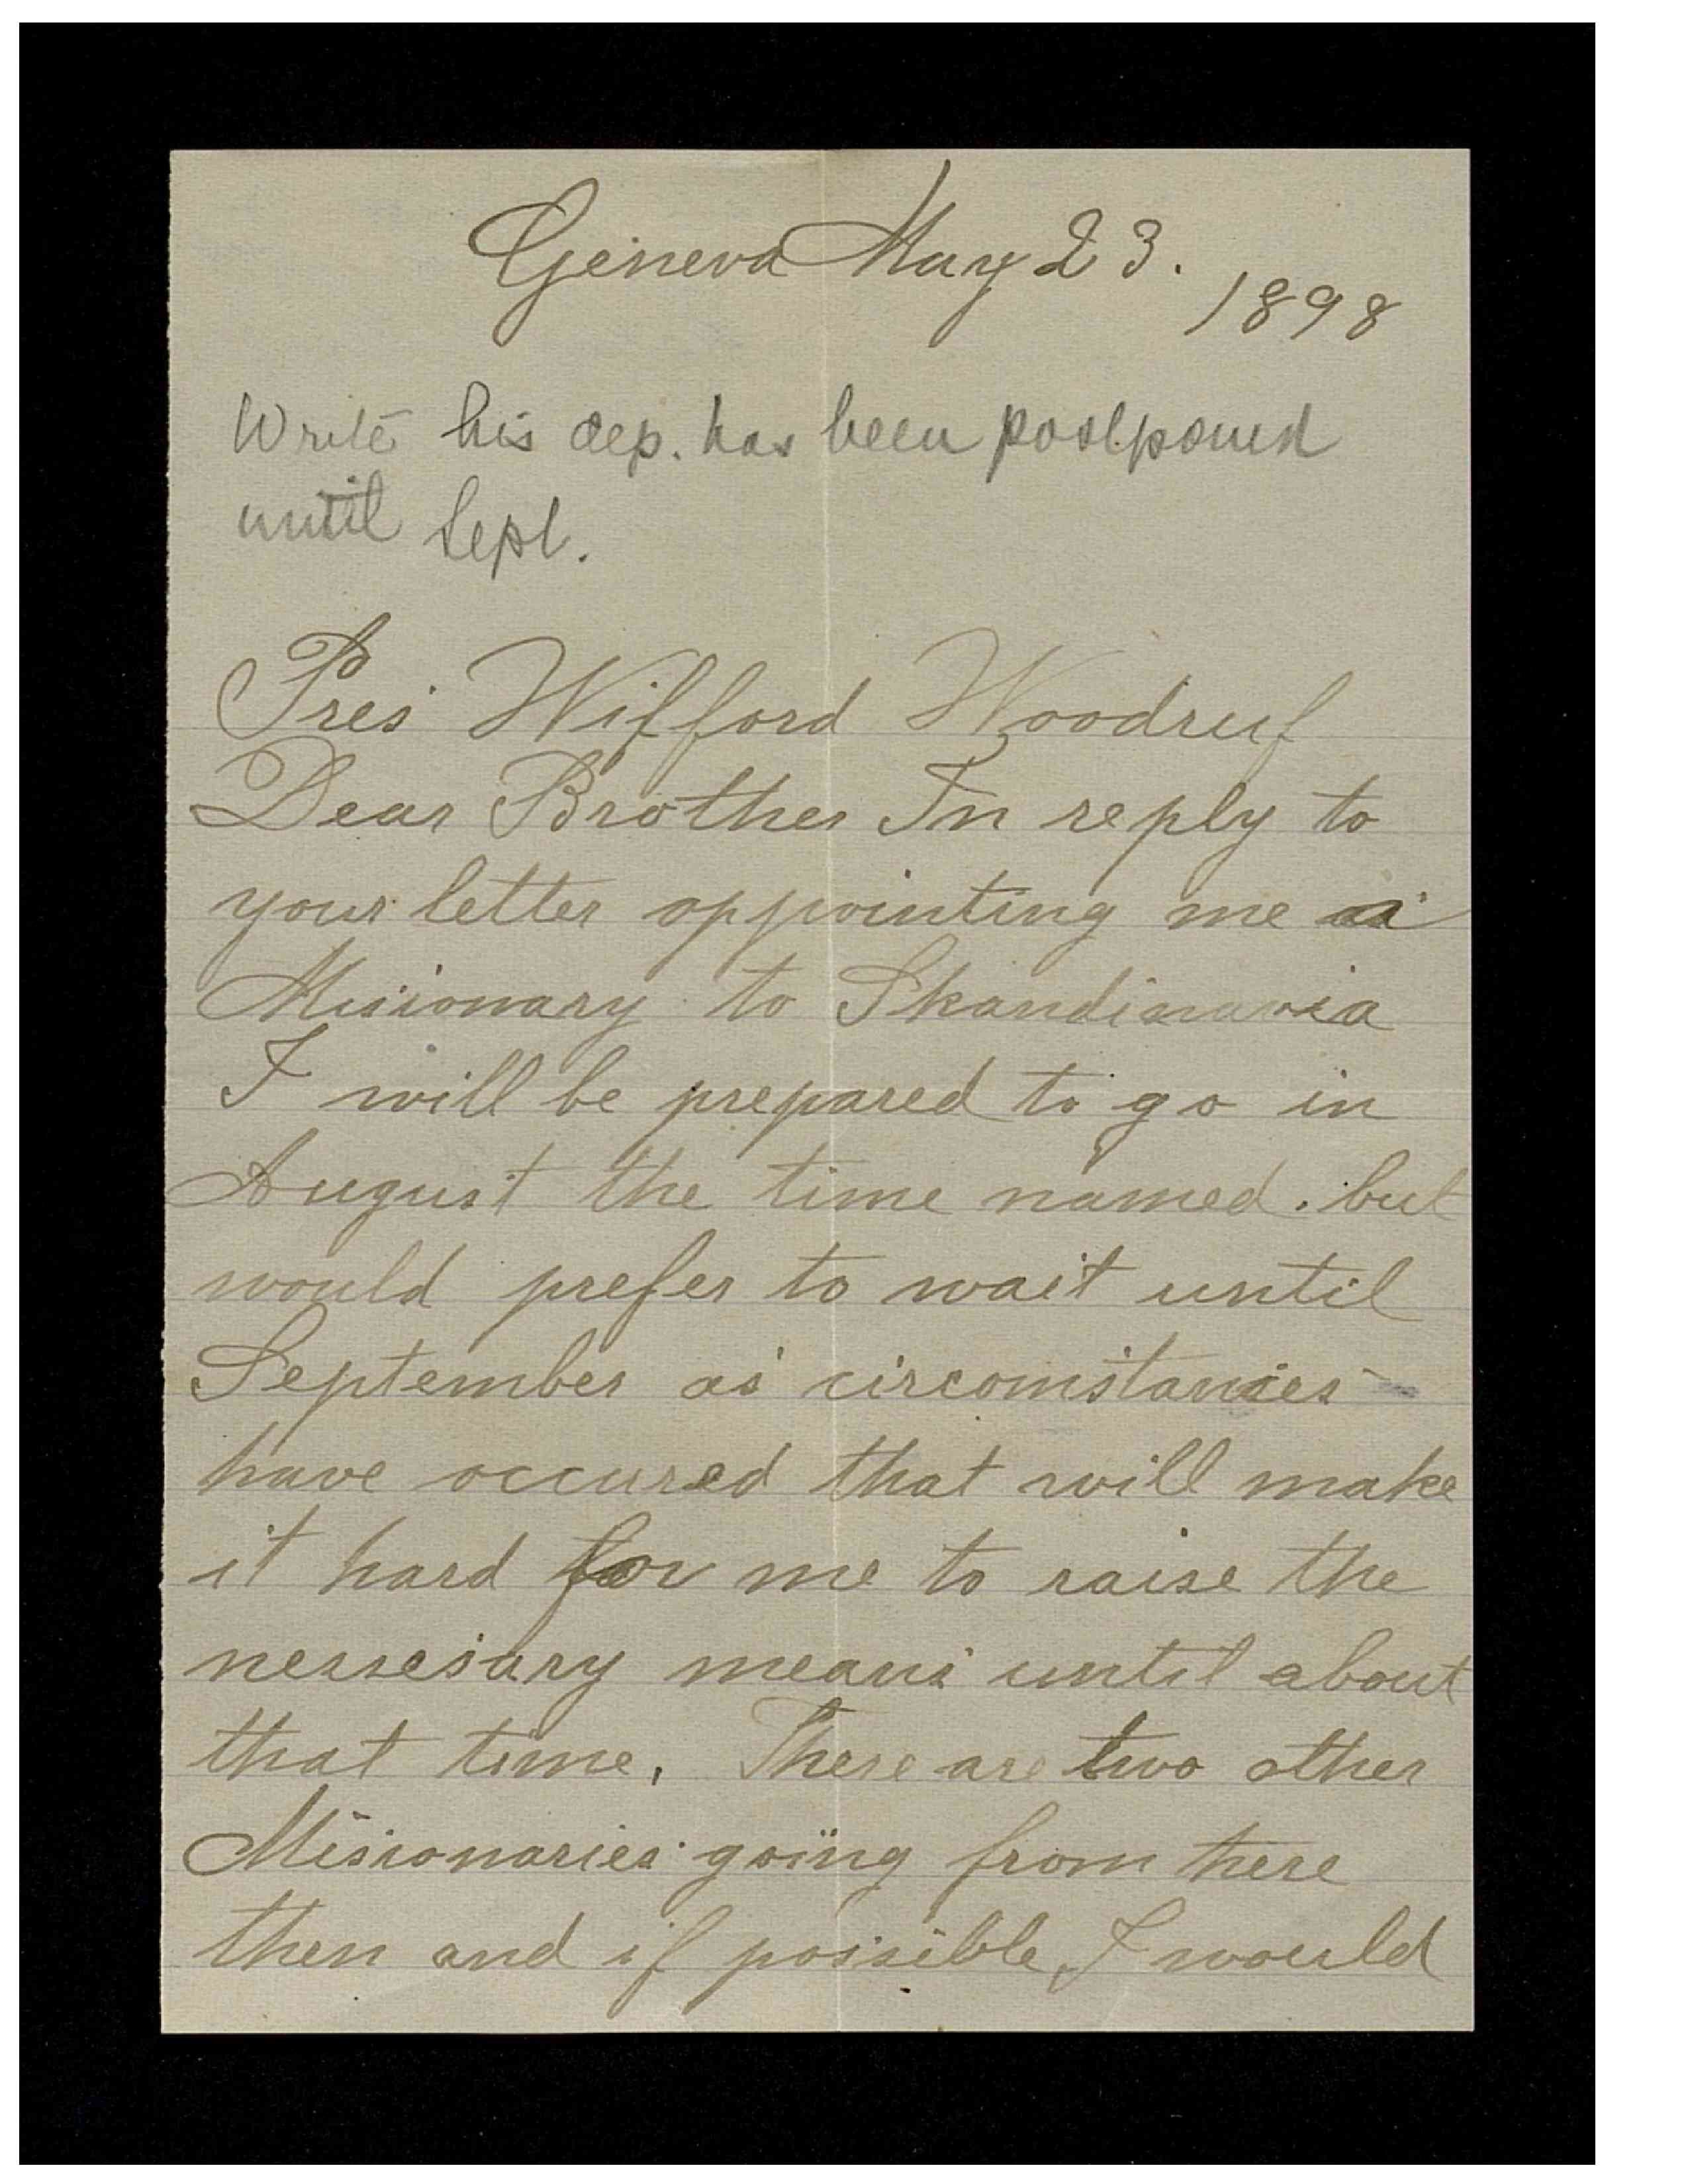 Geneva May 23.
1898
Write his dep. has been postponed
until Sept.
Pres Wilford Woodruf
Dear Brother In reply to
your letter appointing me a
Misionary to Skandinavia
I will be prepared to go in
August the time named. but
would prefer to wait until
September as circomstances
have occured that will make
it hard for me to raise the
nessesary means until about
that time. There are two other
Misionaries going from here
then and if possible I would